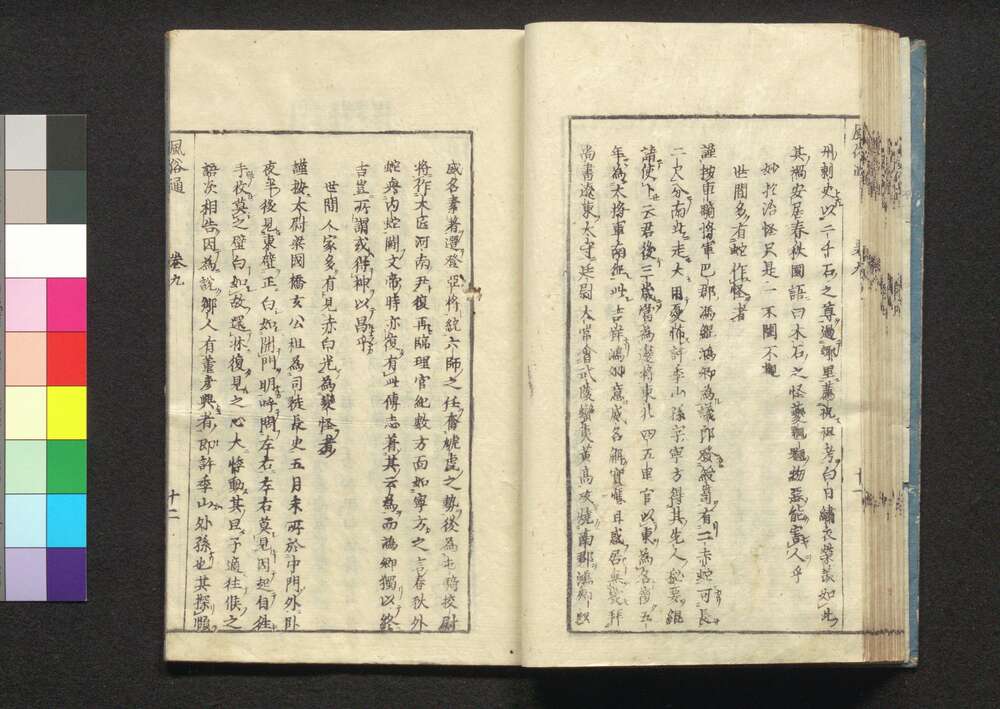 州刺史以二千石之尊過鄉里薦祝祖考白日繡衣榮羨如此
其禍安居春秋國語曰木石之怪夔魍魎物惡能害人乎
世間多有蛇作怪者
謹按車騎將軍巴郡馮緄鴻卿為議郎發綬笥有二赤蛇可長
二尺分南北走大用憂怖許季山孫寧方得其先人秘要緄
請使卜云君後三歲當為邊將東北四五里官以東為名復五
年為大將軍南征此吉祥鴻卿意
尚書遼東太守廷尉太常會武陵蠻夷黃高攻燒南郡鴻卿以
威名素著選登亞將統六師之任奮虓虎之勢後為屯騎校尉
將作大匠河南尹復再臨理官紀數方面如寧方之言春秋外
蛇與內蛇鬭文帝時亦復有此傳志著其云為而鴻卿獨以終
吉豈所謂或得神以昌乎
世間人家多有見赤白光為變怪者
謹按太尉梁國橋玄公祖為司徒長史五月末所於中門外臥
夜半後見東壁正白如開門明呼問左右左右莫見因起自往
手收莫之壁白如故還牀復見之心大悸動其旦予適往候之
語次相告因為說鄉人有董彥興者即許季山外孫也其探賾
風俗通
卷九
十二